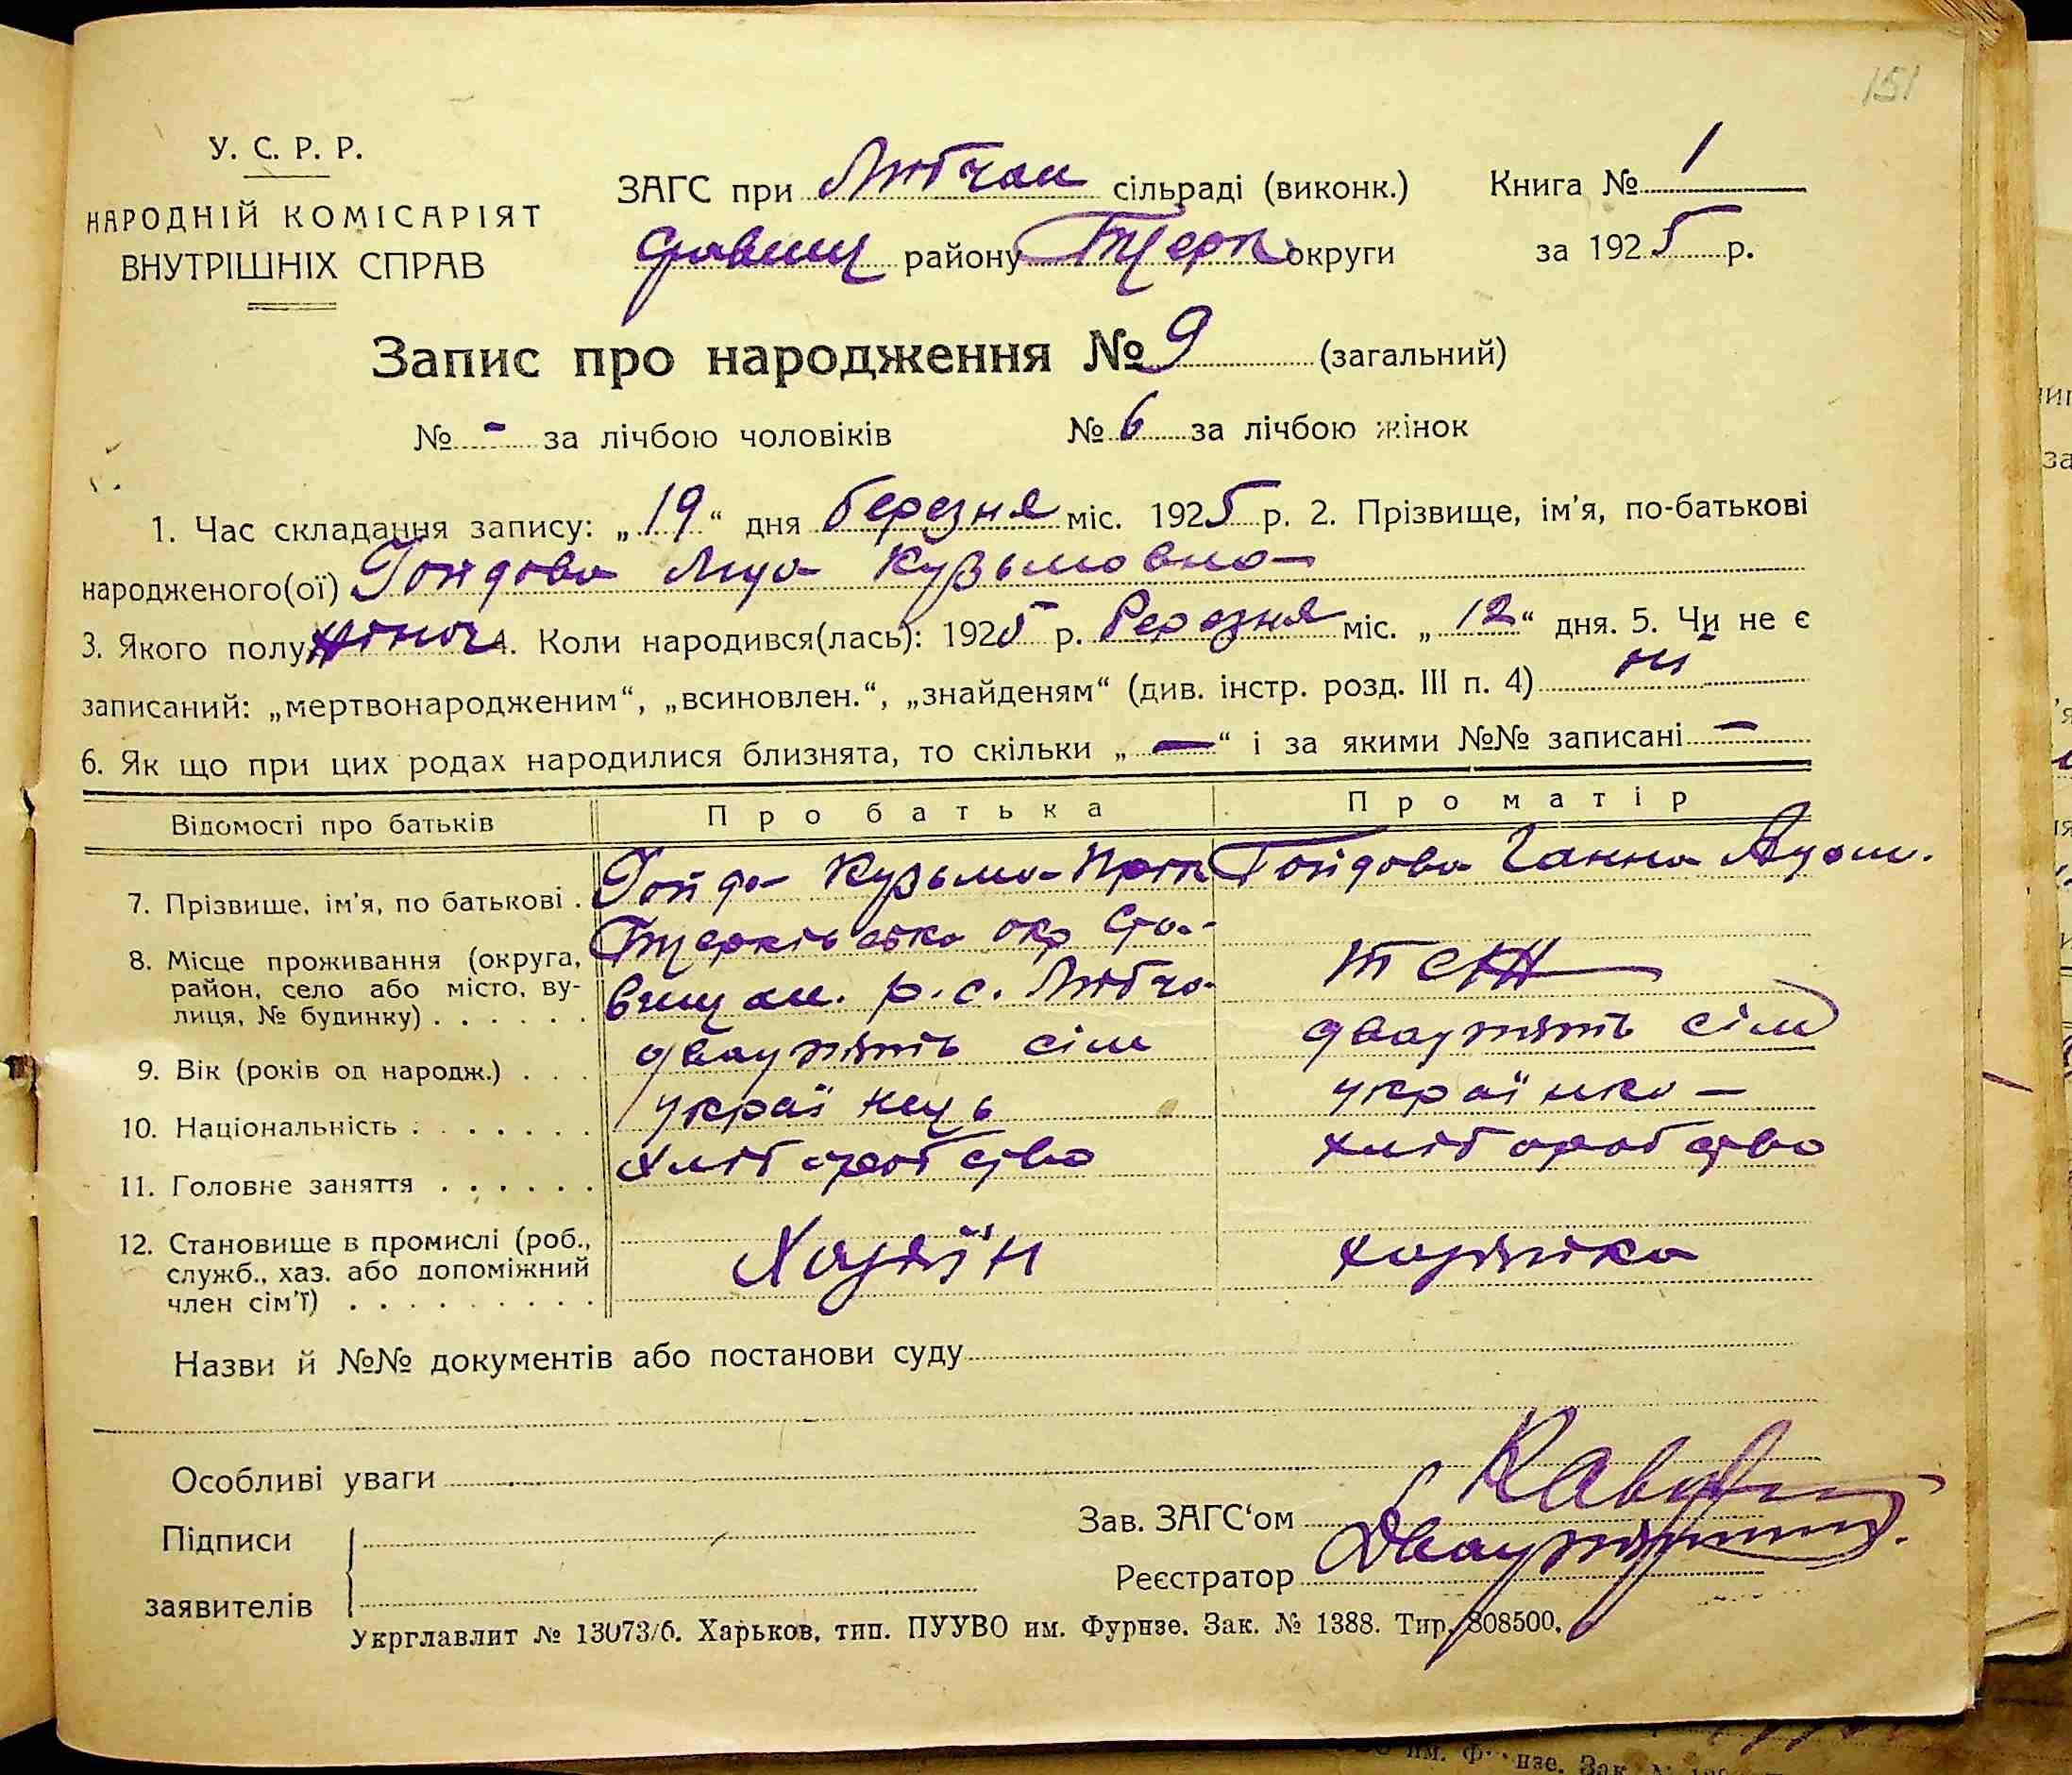 151
У. С. Р. Р.
НАРОДНІЙ КОМІСАРІЯТ
ВНУТРІШНІХ СПРАВ
ЗАГС при Любчан сільраді (виконк.)
Ставищ району Бцерк округи
Книга № 1
за 1925 р.
Запис про народження № 9 (загальний)
№ - за лічбою чоловіків № 6 за лічбою жінок
1. Час складання запису: „19“ дня березня міс. 1925 р. 2. Прізвище, ім'я, по-батькові
народженого(ої) Гойдова Кузьмовна
3. Якого полу жіноч 4. Коли народився(лась): 1925 р. Березня міс. „12“ дня. 5. Чи не є
записаний: „мертвонародженим“, „всиновлен.“, „знайденям“ (див. інстр. розд. III п. 4) ні
6. Як що при цих родах народилися близнята, то скільки „—“ і за якими №№ записані —
Відомості про батьків Про батька Про матір
7. Прізвище, ім'я, по батькові . Гойда Кузьма Гойдова Ганна
8. Місце проживання (округа, район, село або місто, вулиця, № будинку) . . . . . .
Бцерківська окр Ста-
вищан. р. с. Любча- теж
9. Вік (років од народж.) . . . двацять сім двацять сім
10. Національність . . . . . . . українець українка —
11. Головне заняття . . . . . . хліборобство хліборобство
12. Становище в промислі (роб., служб., хаз. або допоміжний член сім'ї) . . . . . . . . . Хазяїн хазяйка
Назви й №№ документів або постанови суду
Особливі уваги
Підписи
заявителів
Зав. ЗАГС‘ом
Реєстратор
Укрглавлит № 13073/б. Харьков, тип. ПУУВО им. Фурнзе. Зак. № 1388. Тир. 808500.